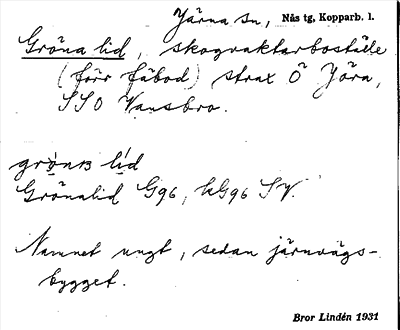 Järna sn, Nås tg, Kopparb. l.
Gröna lid, skogvaktarboställe
(förr fäbod) strax Ö Yöra,
SSO Vansbro.
grö̀nɐ lí̀d
Grönalid G96, hG96 SV.
Namnet ungt, sedan järnvägs-
bygget.
Bror Lindén 1931